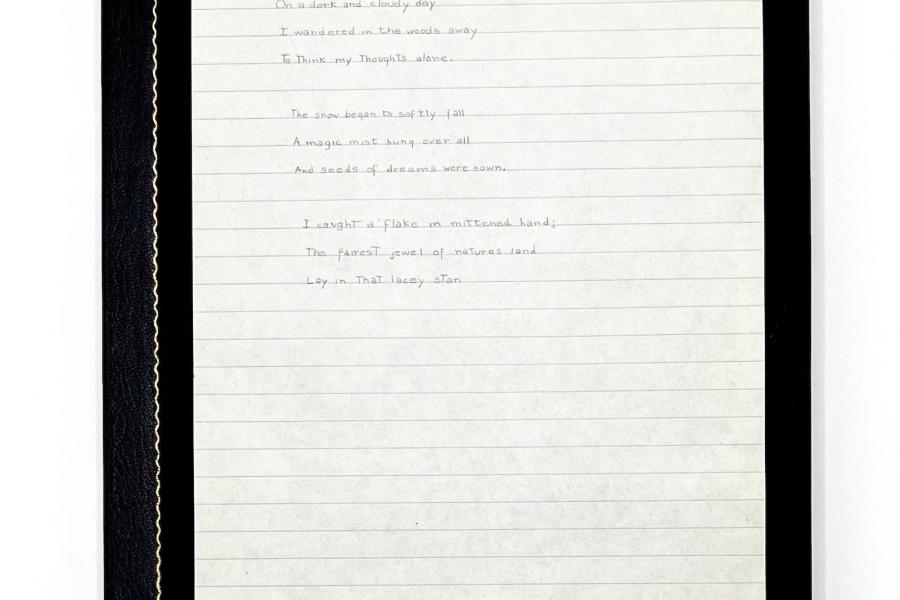 On a dark and cloudy day
I wandered in the woods away
To Think my Thoughts alone.
The snow began to softly fall
A magic mist hung over all
And seeds of dreams were sown.
I caught a 'flake in mittened hand;
The fairest jewel of natures land
Lay in That lacey star.